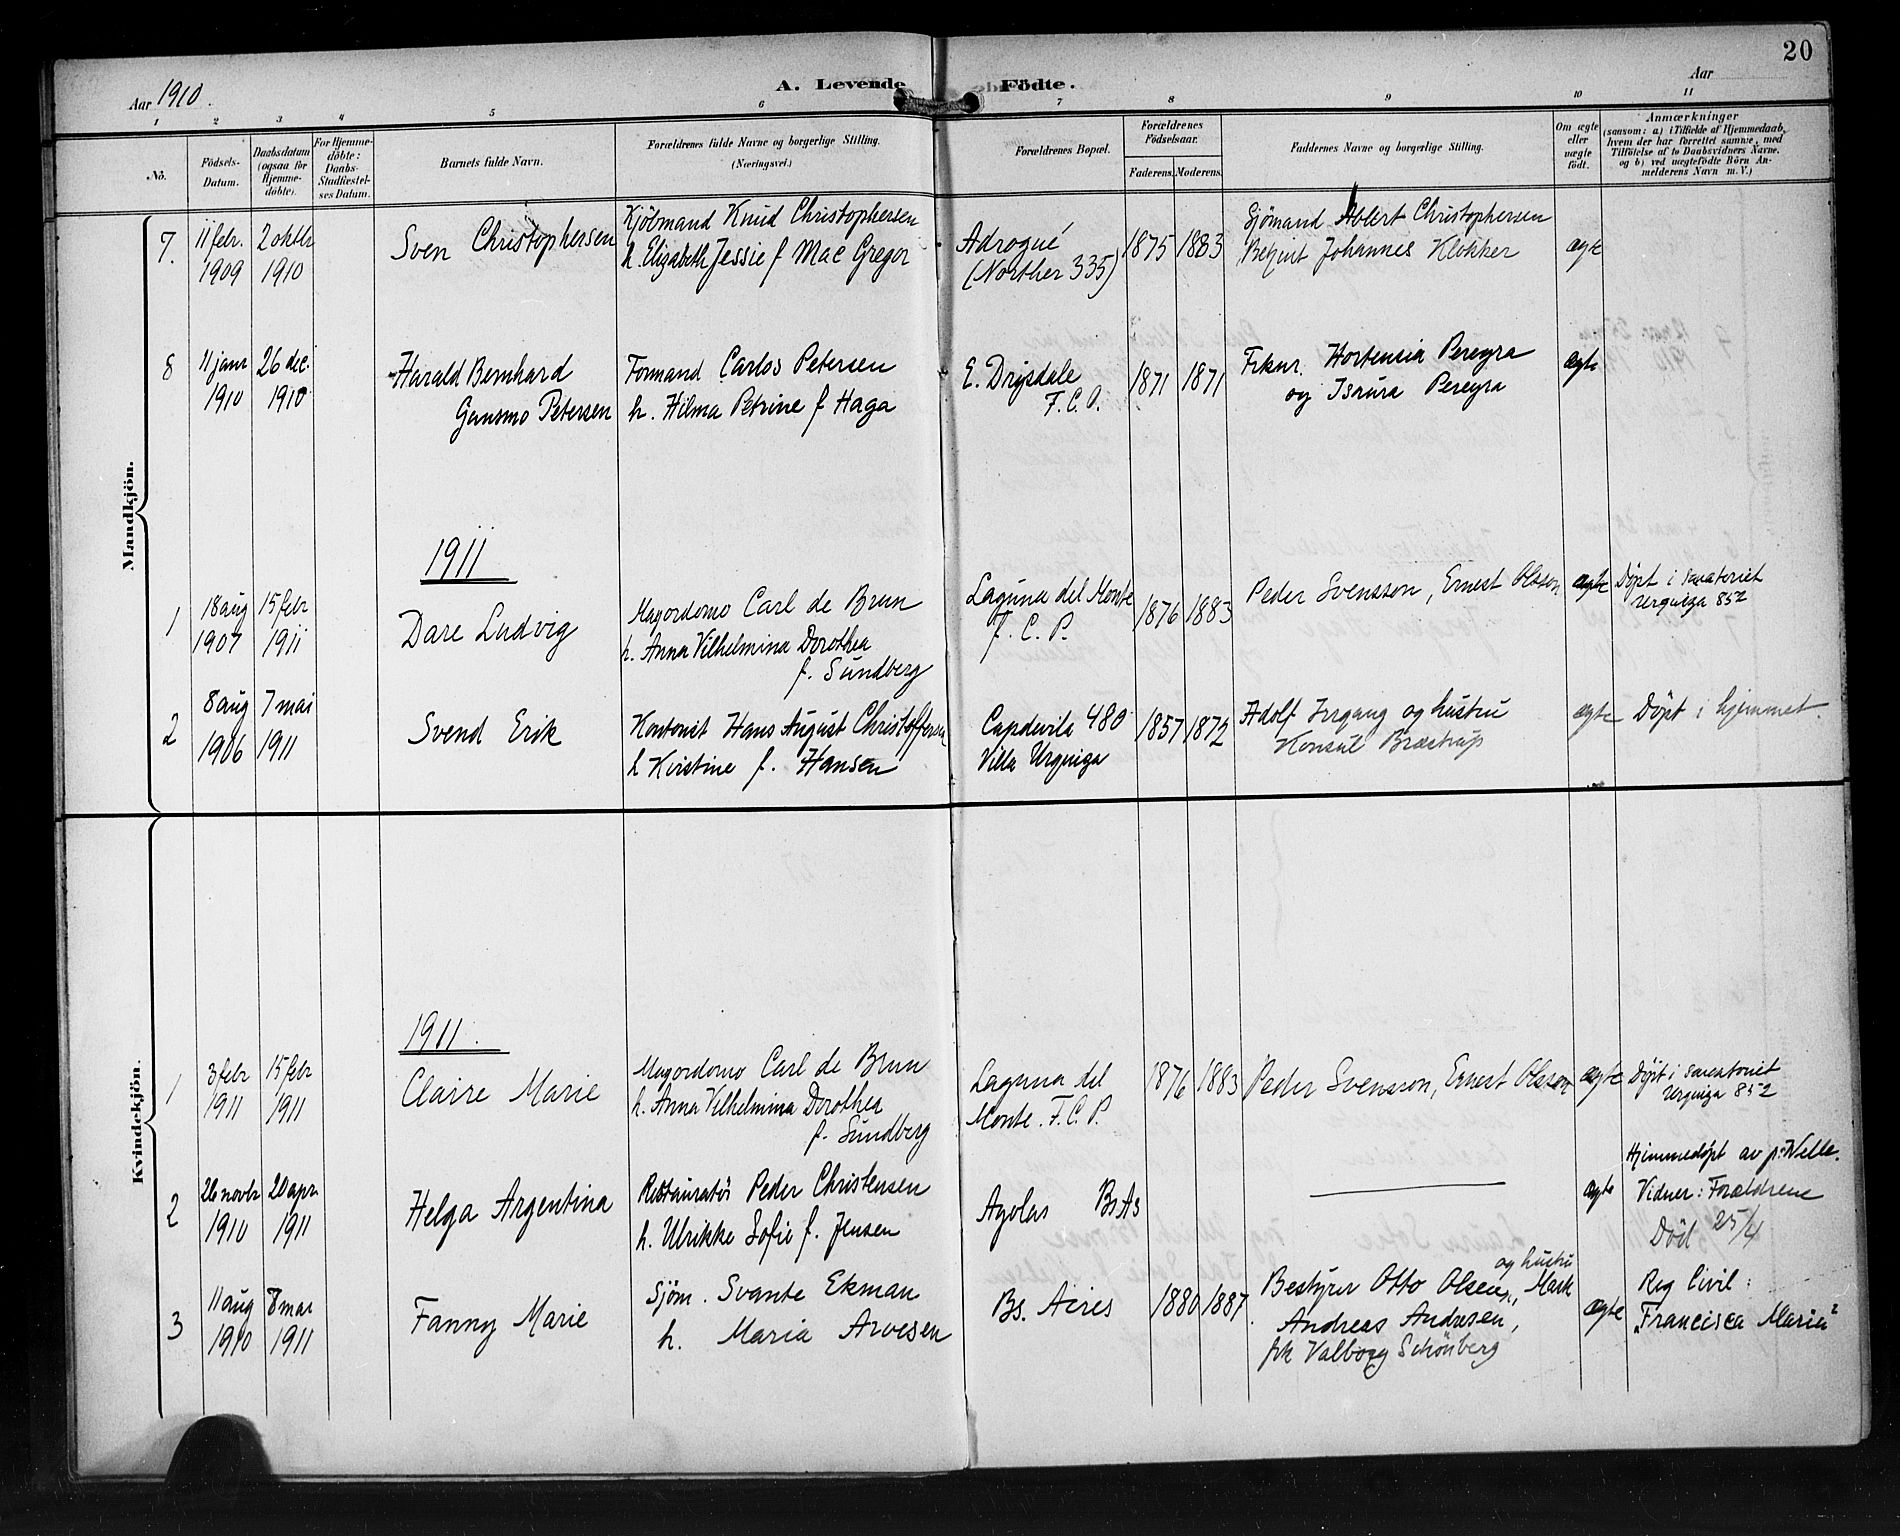 20
Aar 1910.
A. Levende Födte.
Aar
1 2 3 4 5 6 7 8 9 10 11
No.
Födsels-Datum.
Daabsdatum (ogsaa for Hjemme-döbte).
For Hjemme-döbte: Daabs-Stadfæstel-ses Datum.
Barnets fulde Navn.
Forældrenes fulde Navne og borgerlige Stilling.
(Næringsvei.)
Forældrenes Bopæl.
Forældrenes Födselsaar.
Faderens. Moderens.
Faddernes Navne og borgerlige Stilling.
Om ægte eller uægte födt.
Anmærkninger
(saasom: a) i Tilfælde af Hjemmedaab, hvem der har forrettet samme, med Tilföielse af to Daabsvidners Navne. og b) ved uægtefödte Börn An-melderens Navn m. V.)
Mandkjön.
7. 11 febr. 1909 2 oktbr 1910
Sven Christophersen
Kjöbmand Knud Christophersen
h. Elizabeth Jessie f Mac Gregor
Adrogué
(Norther 335)
1875 1883
Sjömand Christophersen
Johannes Klokker
ægte
8 11 janr 1910 26 dec. 1910
Harald Bernhard
Gansmo Petersen
Formand Carlos Petersen
h. Hilma Petrine f Haga
E. Drysdale
F.C.O.
1871 1871
Frknr. Hortensia Pereyra
og Isaura Pereyra
ægte
1911
1 18 aug 1907 15 febr 1911
Dare Ludvig
Mayordomo Carl de Brun
h. Anna Vilhelmina Dorothea
f. Sundberg
Laguna del Monte
F. C. P.
1876 1883
Peder Svensson, Ernest Olsson
ægte
Döpt i sanatoriet
Urquiza 852
2 8 aug 1906 7 mai 1911
Svend Erik
Kontorist Hans August Christoffersen
h Kristine f. Hansen
Capdevila 480
Villa Urquiza
1857 1872
Adolf Irgang og hustru
Konsul Bræstrup
ægte
Döpt i hjemmet.
Kvindekjön.
1911.
1 3 febr 1911 15 febr 1911
Claire Marie
Mayordomo Carl de Brun
h. Anna Vilhelmina Dorothea
f. Sundberg
Laguna del
Monte. F.C.P.
1876 1883
Peder Svensson, Ernest Olsson
ægte
Döpt i sanatoriet
Urquiza 852
2 26 novbr 1910 20 apr 1911
Helga Argentina
Restauratör Peder Christensen
h. Ulrikke Sofie f. Jensen
BsAs
ægte
Hjemmedöpt av p. Welle.
Vidner: Forældrene
Död 25/4
3 11 aug 1910 8 mai 1911
Fanny Marie
Sjöm. Svante Ekman
h. Maria Arvesen
Bs. Aires
1880 1887
Bestyrer Otto Olsen og hustru, Mask
Andreas Andresen,
frk Valborg Schönberg
ægte
Reg Civil:
"Francisca Maria"